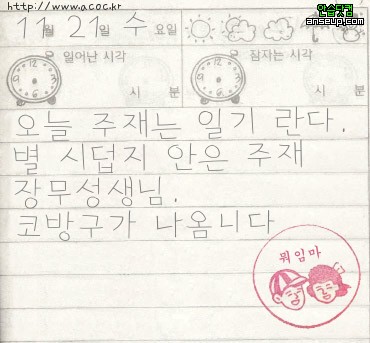 http://www.acoc.kr
안습닷컴
anseup.com
11월 21일 수 요일
일어난 시각
잠자는 시각
시 분
시 분
오늘 주재는 일기 란다.
별 시덥지 안은 주재
장무성생님.
코방구가 나옴니다
뭐임마